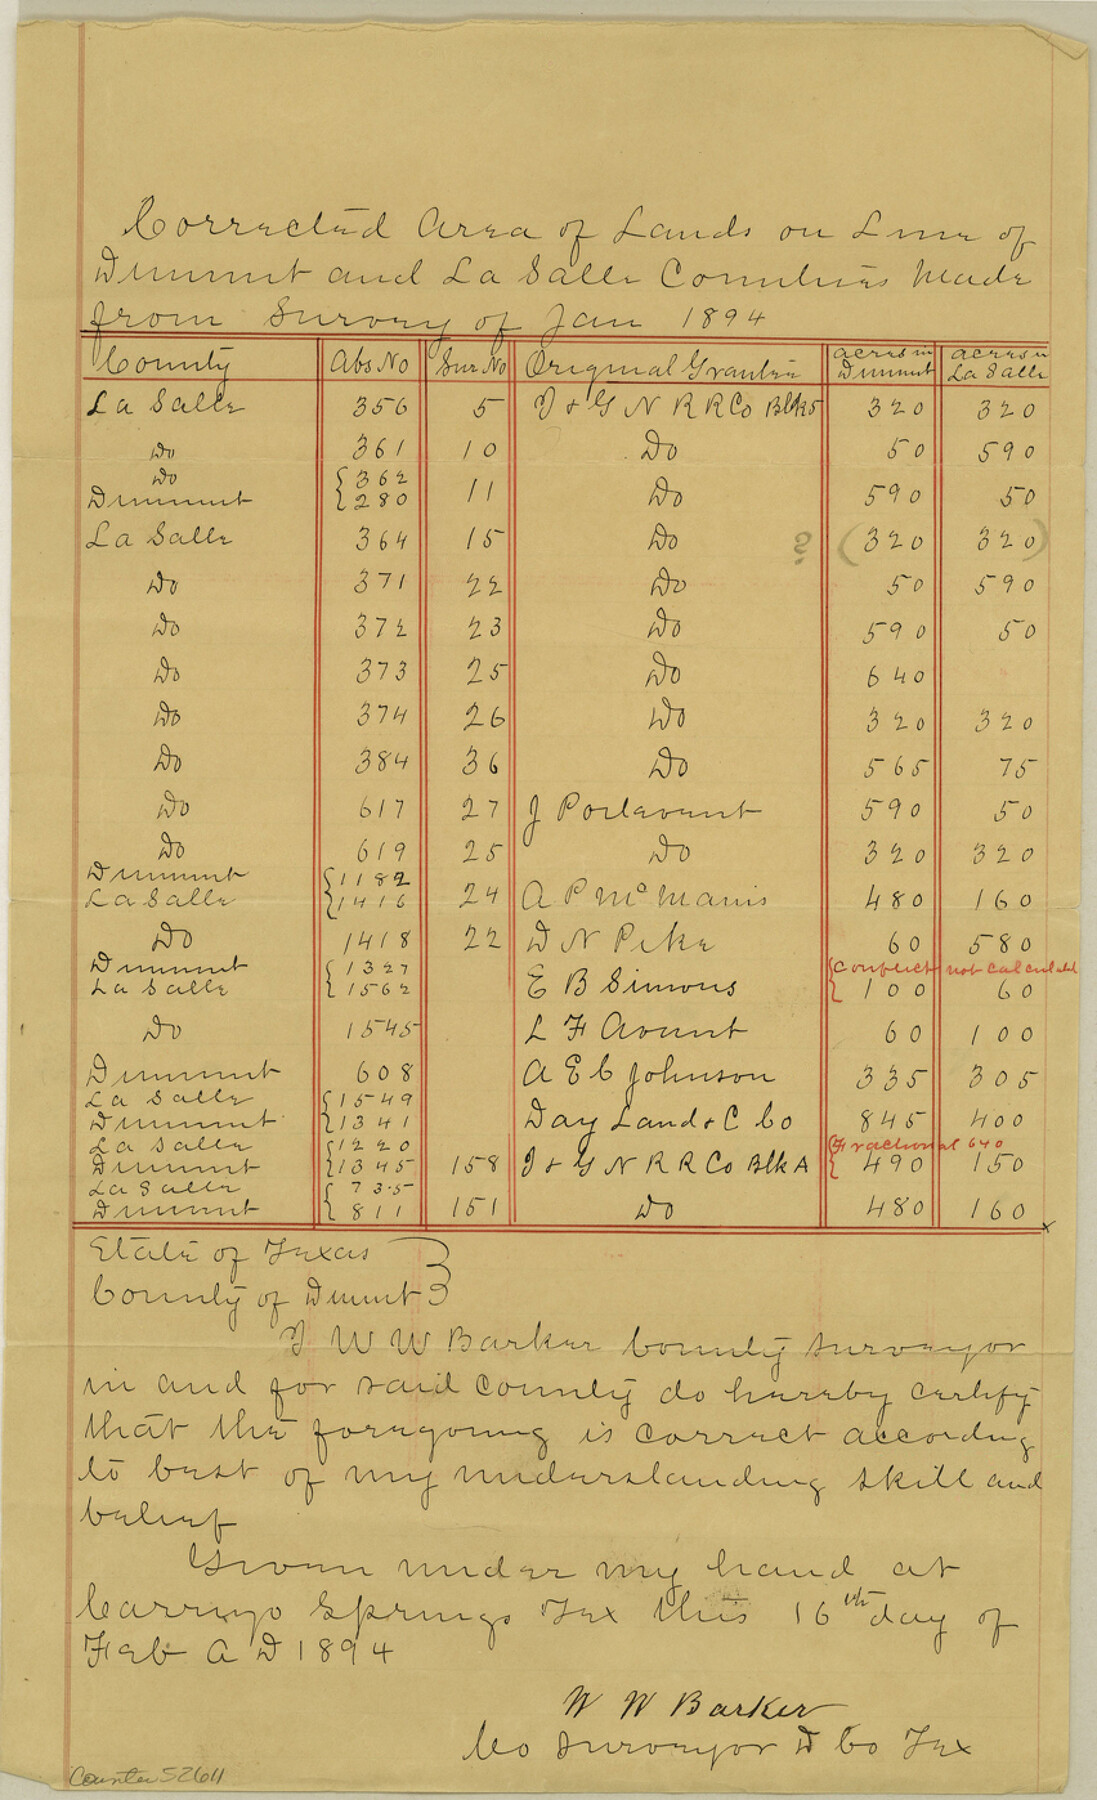 Corrected Area of Lands on Line of
Dimmit and La Salle Counties Made
from Survey of Jan 1894
County Abs No Sur No Original Grantee acres in Dimmit acres in La Salle
La Salle 356 5 I & G N R R Co Blk 5 320 320
Do 361 10 Do 50 590
Do Dimmit { 362 280 11 Do 590 50
La Salle 364 15 Do ? (320 320)
Do 371 22 Do 50 590
Do 372 23 Do 590 50
Do 373 25 Do 640
Do 374 26 Do 320 320
Do 384 36 Do 565 75
Do 617 27 J Poitevent 590 50
Do 619 25 Do 320 320
Dimmit La Salle { 1182 1416 24 A P McManis 480 160
Do 1418 22 D N Pike 60 580
Dimmit La Salle { 1327 1562 E B Simons { conflict not calculated 100 60
Do 1545 L F Avant 60 100
Dimmit 608 A E C Johnson 335 305
La Salle Dimmit { 1549 1341 Day Land & C Co 845 400
La Salle Dimmit { 1220 1345 158 I & G N R R Co Blk A { Fractional 640 490 150
La Salle Dimmit { 735 811 151 Do 480 160 x
State of Texas }
County of Dimmit }
I W W Barker County Surveyor
in and for said County do hereby certify
that the foregoing is correct according
to best of my understanding skill and
belief
Given under my hand at
Carrizo Springs Tex this 16th day of
Feb A D 1894
W W Barker
Co Surveyor D Co Tex
Counter 52611